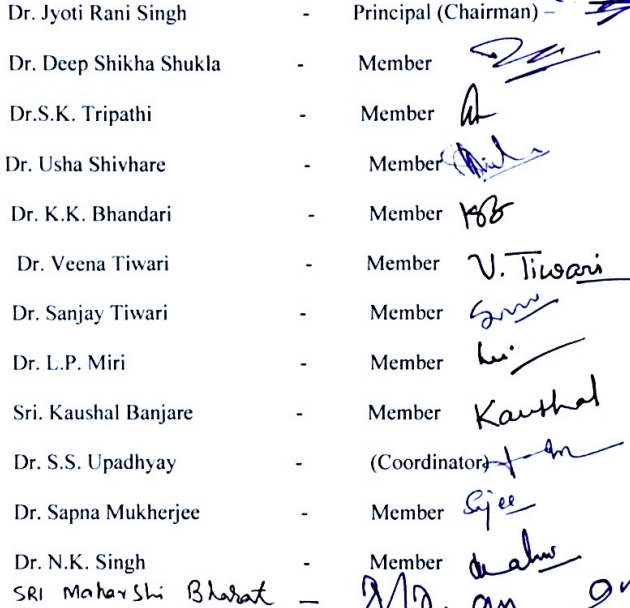 Dr. Jyoti Rani Singh - Principal (Chairman) –
Dr. Deep Shikha Shukla - Member
Dr.S.K. Tripathi - Member
Dr. Usha Shivhare - Member
Dr. K.K. Bhandari - Member
Dr. Veena Tiwari - Member V. Tiwari
Dr. Sanjay Tiwari - Member
Dr. L.P. Miri - Member
Sri. Kaushal Banjare - Member Kaushal
Dr. S.S. Upadhyay - (Coordinator)
Dr. Sapna Mukherjee - Member
Dr. N.K. Singh - Member
SRI Maharshi Bharat –